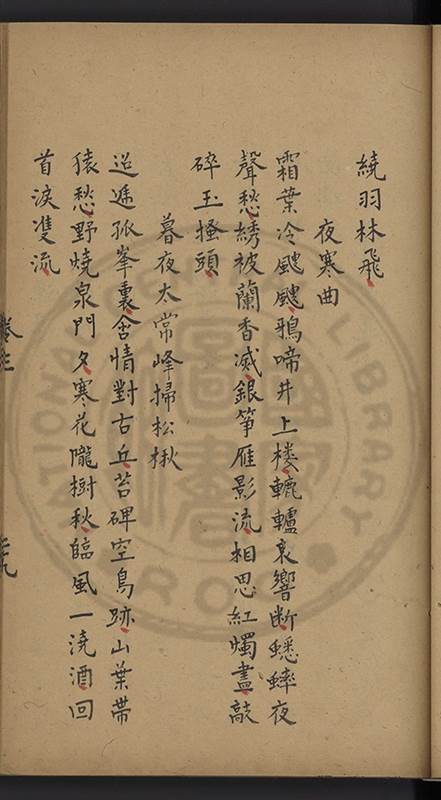 繞羽林飛
夜寒曲
霜葉冷颼颼鴉啼井上楼轆轤哀響断蟋蟀夜
聲愁綉被蘭香滅銀箏雁影流相思紅燭盡敲
碎玉搔頭
暮夜太常峰掃松楸
迢遞孤峯裏含情對古丘苔碑空鳥跡山葉帶
猿愁野燒泉門夕寒花隴樹秋臨風一澆酒回
首淚雙流